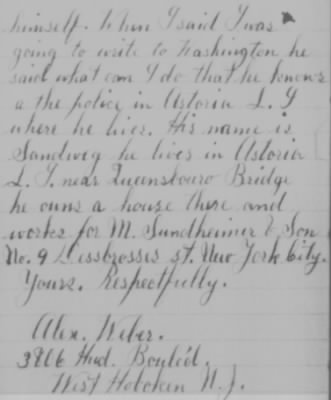 himself. When I said I was
going to write to Washington he
said what can I do that he knows
a the police in Astoria L. I
where he lives. His name is
Sandweg he lives in Astoria
L. I. near Queensbouro Bridge
he owns a house there and
works for M. Sundheimer & Son
No. 9 Dessbrosses st. New York City.
Yours. Respectfully.
Alex. Weber.
Hud. Boul'd.
West Hoboken N. J.